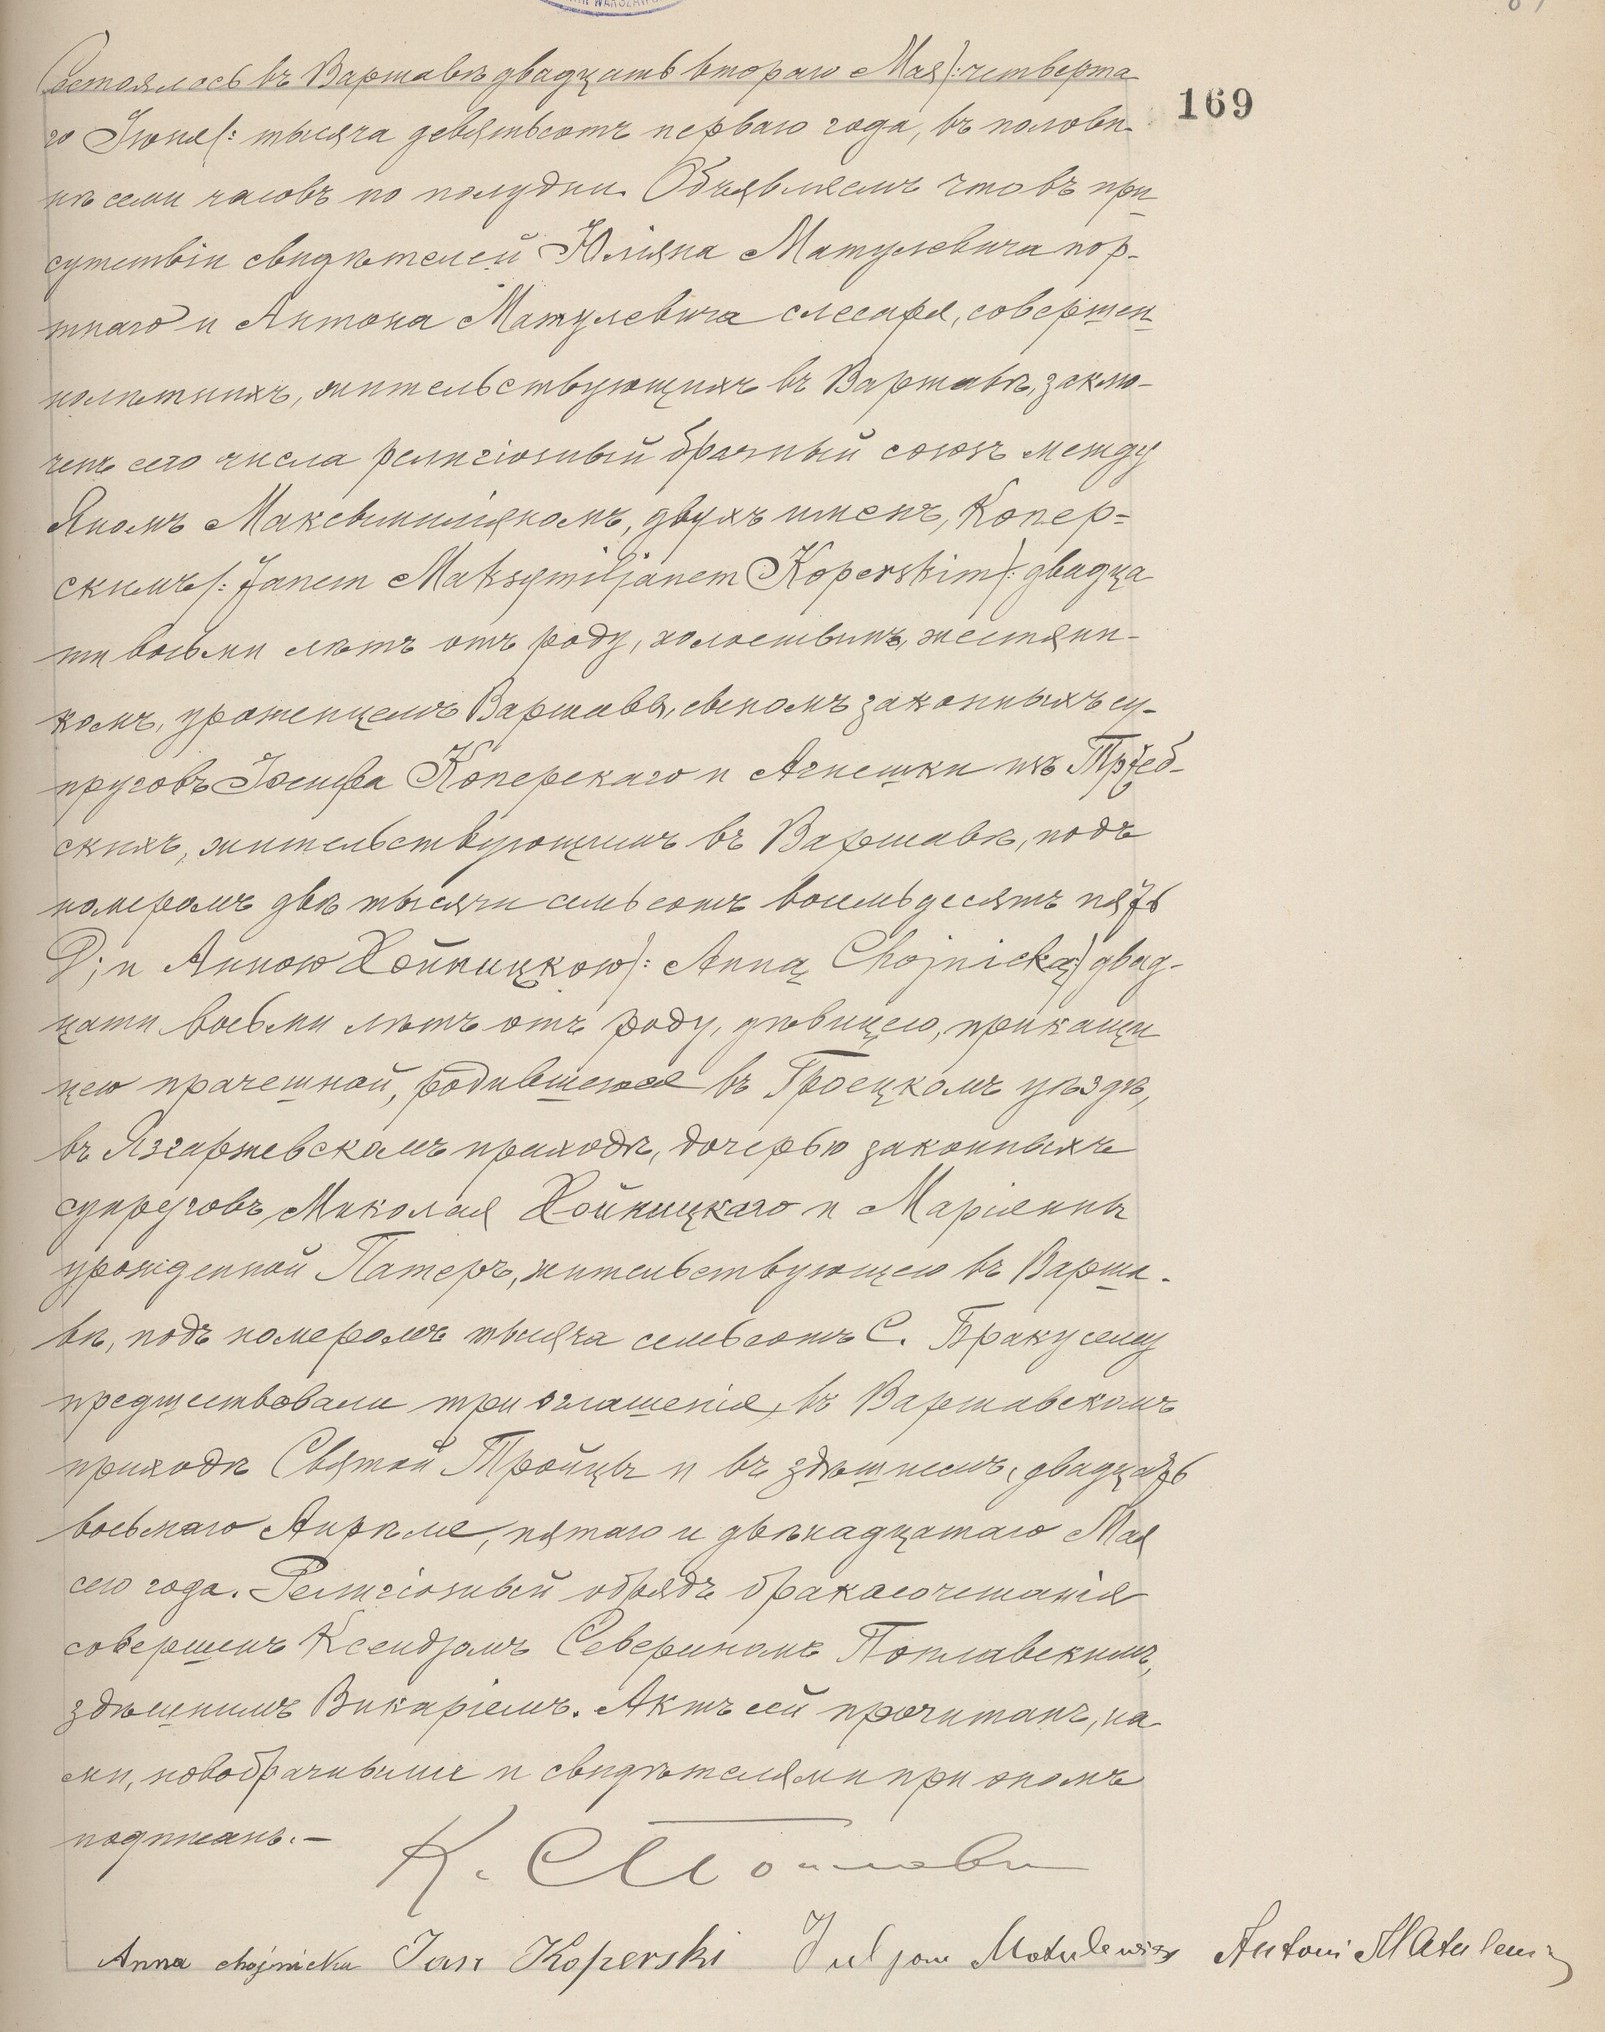 Состоялось въ Варшавѣ двадцать втораго Мая /: четверта
го Іюня /: тысяча девятьсотъ перваго года, въ полови-
нѣ семи часовъ по полудни. Объявляемъ что въ при
сутствіи свидѣтелей Юліяна Матулевича пор-
тнаго и Антона Матулевича слесаря, совершен
нолѣтнихъ, жительствующихъ въ Варшавѣ, заклю-
ченъ сего числа религіозный брачный союзъ между
Яномъ Максымиліяномъ, двухъ именъ, Копер-
скимъ /: Janem Maksymiljanem Koperskim /: двадца
ти восьми лѣтъ отъ роду, холостымъ, жестяни-
комъ, уроженцемъ Варшавы, сыномъ законныхъ су-
пруговъ Іосифа Коперскаго и Агнешки изъ
скихъ, жительствующимъ въ Варшавѣ, подъ
номеромъ двѣ тысячи семьсотъ восемьдесятъ пять
Д; и Анною Хойницкою /: Anną Chojnicką :/ двад-
цати восьми лѣтъ отъ роду, дѣвицею, прикащи
цею прачешной, родившеюся въ Гроецкомъ уѣздѣ,
въ Язгаржевскомъ приходѣ, дочерью законныхъ
супруговъ, Миколая Хойницкаго и Маріянны
урожденной Патеръ, жительствующею въ Варша-
вѣ, подъ номеромъ тысяча семьсотъ С. Браку сему
предшествовали три оглашенія, въ Варшавскомъ
приходѣ Святой Тройцы и въ здѣшнемъ, двадцать
восьмаго Апрѣля, пятаго и двѣнадцатаго Мая
сего года. Религіозный обрядъ бракосочетанія
совершенъ Ксендзомъ Севериномъ Поплавскимъ,
здѣшнимъ Викаріемъ. Актъ сей прочитанъ, на
ми, новобрачными и свидѣтелями при ономъ
подписанъ. –
169
Anna chojnicka Jan Koperski Juljan Matulewicz Antoni MAtulewicz